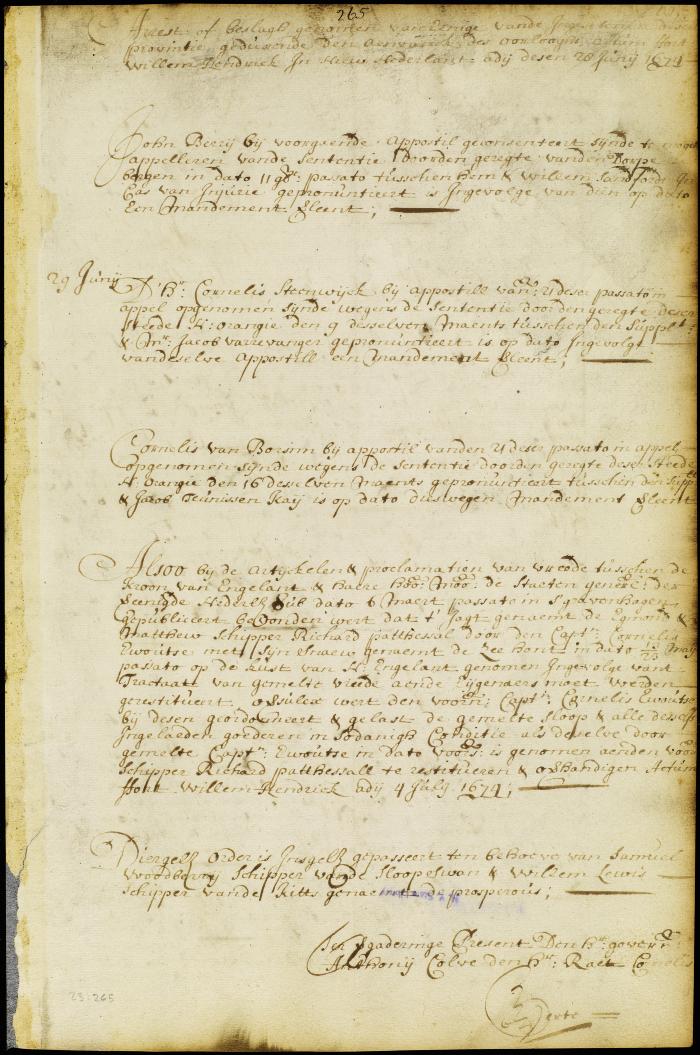 265
Arrest of beslagh genomen van Eenige vande Ingesetenen deser
provintie geduerende den aenwesen des oorloogs Actum fort
Willem Hendrick In Nieuw Nederlant ady desen 28 Junij 1674
John Berrij bij voorgaende Appostil geconsenteert sijnde te mogen
appelleren vande sententie doorden geregte vanden Dorpe
Bergen in dato 11 passato tusschen hem & Willem Sandfort In
Cas van Injurie gepronuntieert is Ingevolge van dien op dato
Een Mandement verleent;
29 Junij
D'Hr: Cornelis Steenwijck bij appostill van 21 deser passato in
appel opgenomen sijnde wegens de sententie doorden geregte deser
steede N: orangie den 9 desselven Maents tusschen den Supplt:
& Mr: Jacob varrevanger gepronuntieert is op dato Ingevolge
vandeselve Appostill een Mandement verleent;
Cornelis van Borsim bij appostil vanden 21 deser passato in appel
opgenomen sijnde wegens de sententie doorden geregte deser Steede
N: orangie den 16 desselven Maents gepronuntieert tusschen den Supp
& Jacob Teunissen Kaij is op dato dieswegen Mandement verleent
Alsoo bij de Artijckelen & proclamatien van vreede tusschen de
Kroon van Engelant & haere Hoo: Moo: de Staeten gener: der
Vereenigde Nederl: sub dato 6 Maert passato in S'gravenhagen
gepubliceert bevonden wert dat t' Jagt genaemt de Egmont &
Matthew Schipper Richard Patthessal door den Capt: Cornelis
Ewoutse met sijn snauw genaemt de Zee hont in dato Maij
passato op de kust van N: Engelant genomen Ingevolge vant
Tractaat van gemelte vreede aende Eijgenaers moet werden
gerestitueert, soo wert den voorn: Capt: Cornelis Ewoutse
bij desen geordonneert & gelast de gemelte sloop & alle desselfs
Ingelaeden goederen in sodanigh Conditie als deselve door
gemelte Capt: Ewoutse in dato voors: is genomen aenden voorn
Schipper Richard Patthessall te restitueren & overhandigen Actum
ffort Willem Hendrick ady 4 July 1674;
Diergelk order is Insgelx gepasseert ten behoeve van Samuel
Woodberry Schipper vande Sloope Swan & Willem Lewis
Schipper vande Kitts genaemt de prosperous;
In Vergaderinge Present Den Hr: Govern:
Anthonij Colve den Hr: Raet Cornelis
Verte
23:265